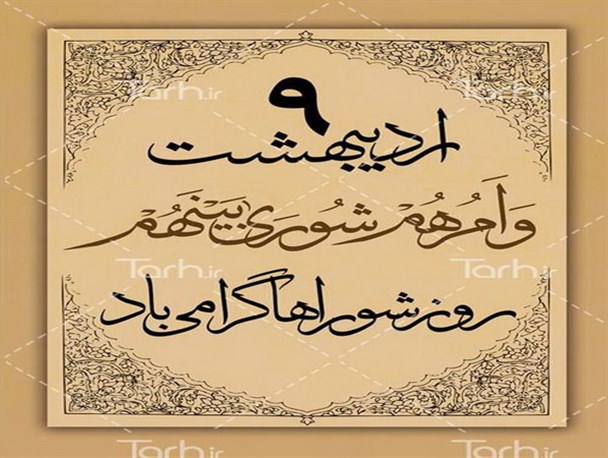 ۹
اردیبهشت
وَأَمرُهُمْ شُورَىٰ بَیْنَهُمْ
روز شوراها گرامی باد
Tarh.ir
Tarh.ir
Tarh.ir
Tarh.ir
Tarh.ir
Tarh.ir